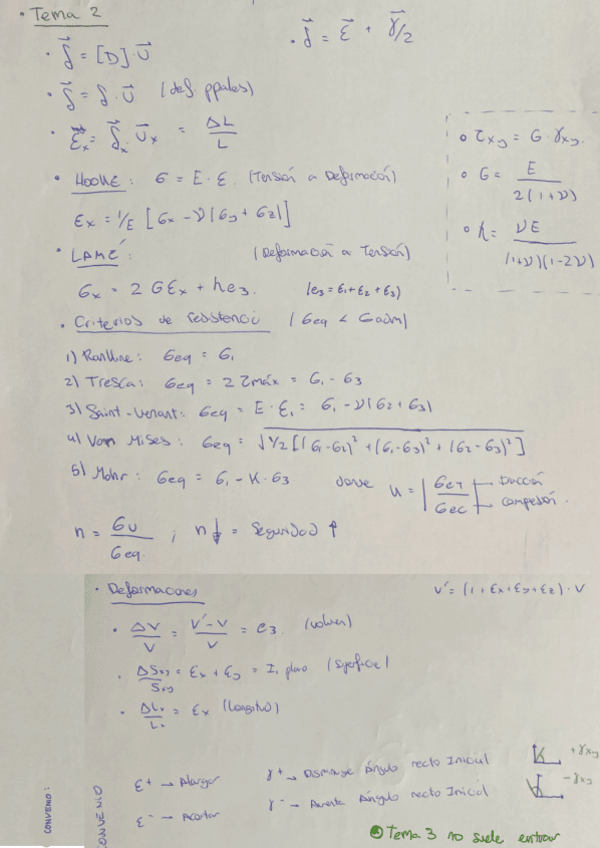 • Tema 2
• δ⃗ = ε⃗ + γ⃗/2
• δ⃗ = [D]·u⃗
• δ⃗ = δ·u⃗ (def. ppales)
• ε⃗x = δ⃗x·u⃗x = ΔL/L
• HOOKE: σ = E·ε (Tensión a Deformación)
εx = 1/E [σx - ν(σy + σz)]
• LAMÉ: (Deformación a Tensión)
σx = 2Gεx + λe3. (e3 = ε1 + ε2 + ε3)
• τxy = G·γxy
• G = E / 2(1+ν)
• λ = νE / (1+ν)(1-2ν)
• Criterios de resistenci (σeq < σadm)
1) Rankine: σeq = σ1
2) Tresca: σeq = 2τmáx = σ1 - σ3
3) Saint-Venant: σeq = E·ε1 = σ1 - ν(σ2 + σ3)
4) Von Mises: σeq = √1/2[(σ1-σ2)² + (σ1-σ3)² + (σ2-σ3)²]
5) Mohr: σeq = σ1 - K·σ3 donde K = |σeT/σeC| tracción compresión.
n = σu/σeq ; n↓ = Seguridad ↑
• Deformaciones V' = (1 + εx + εy + εz)·V
• ΔV/V = V'-V/V = e3 (volumen)
• ΔSxy/Sxy = εx + εy = I1 plano (superficie)
• ΔLx/Lx = εx (Longitud)
CONVENIO:
CONVENIO
ε+ → Alargar
γ+ → Disminuye Ángulo recto Inicial
+γxy
ε- → Acortar
γ- → Aumenta Ángulo recto Inicial
-γxy
Tema 3 no suele entrar